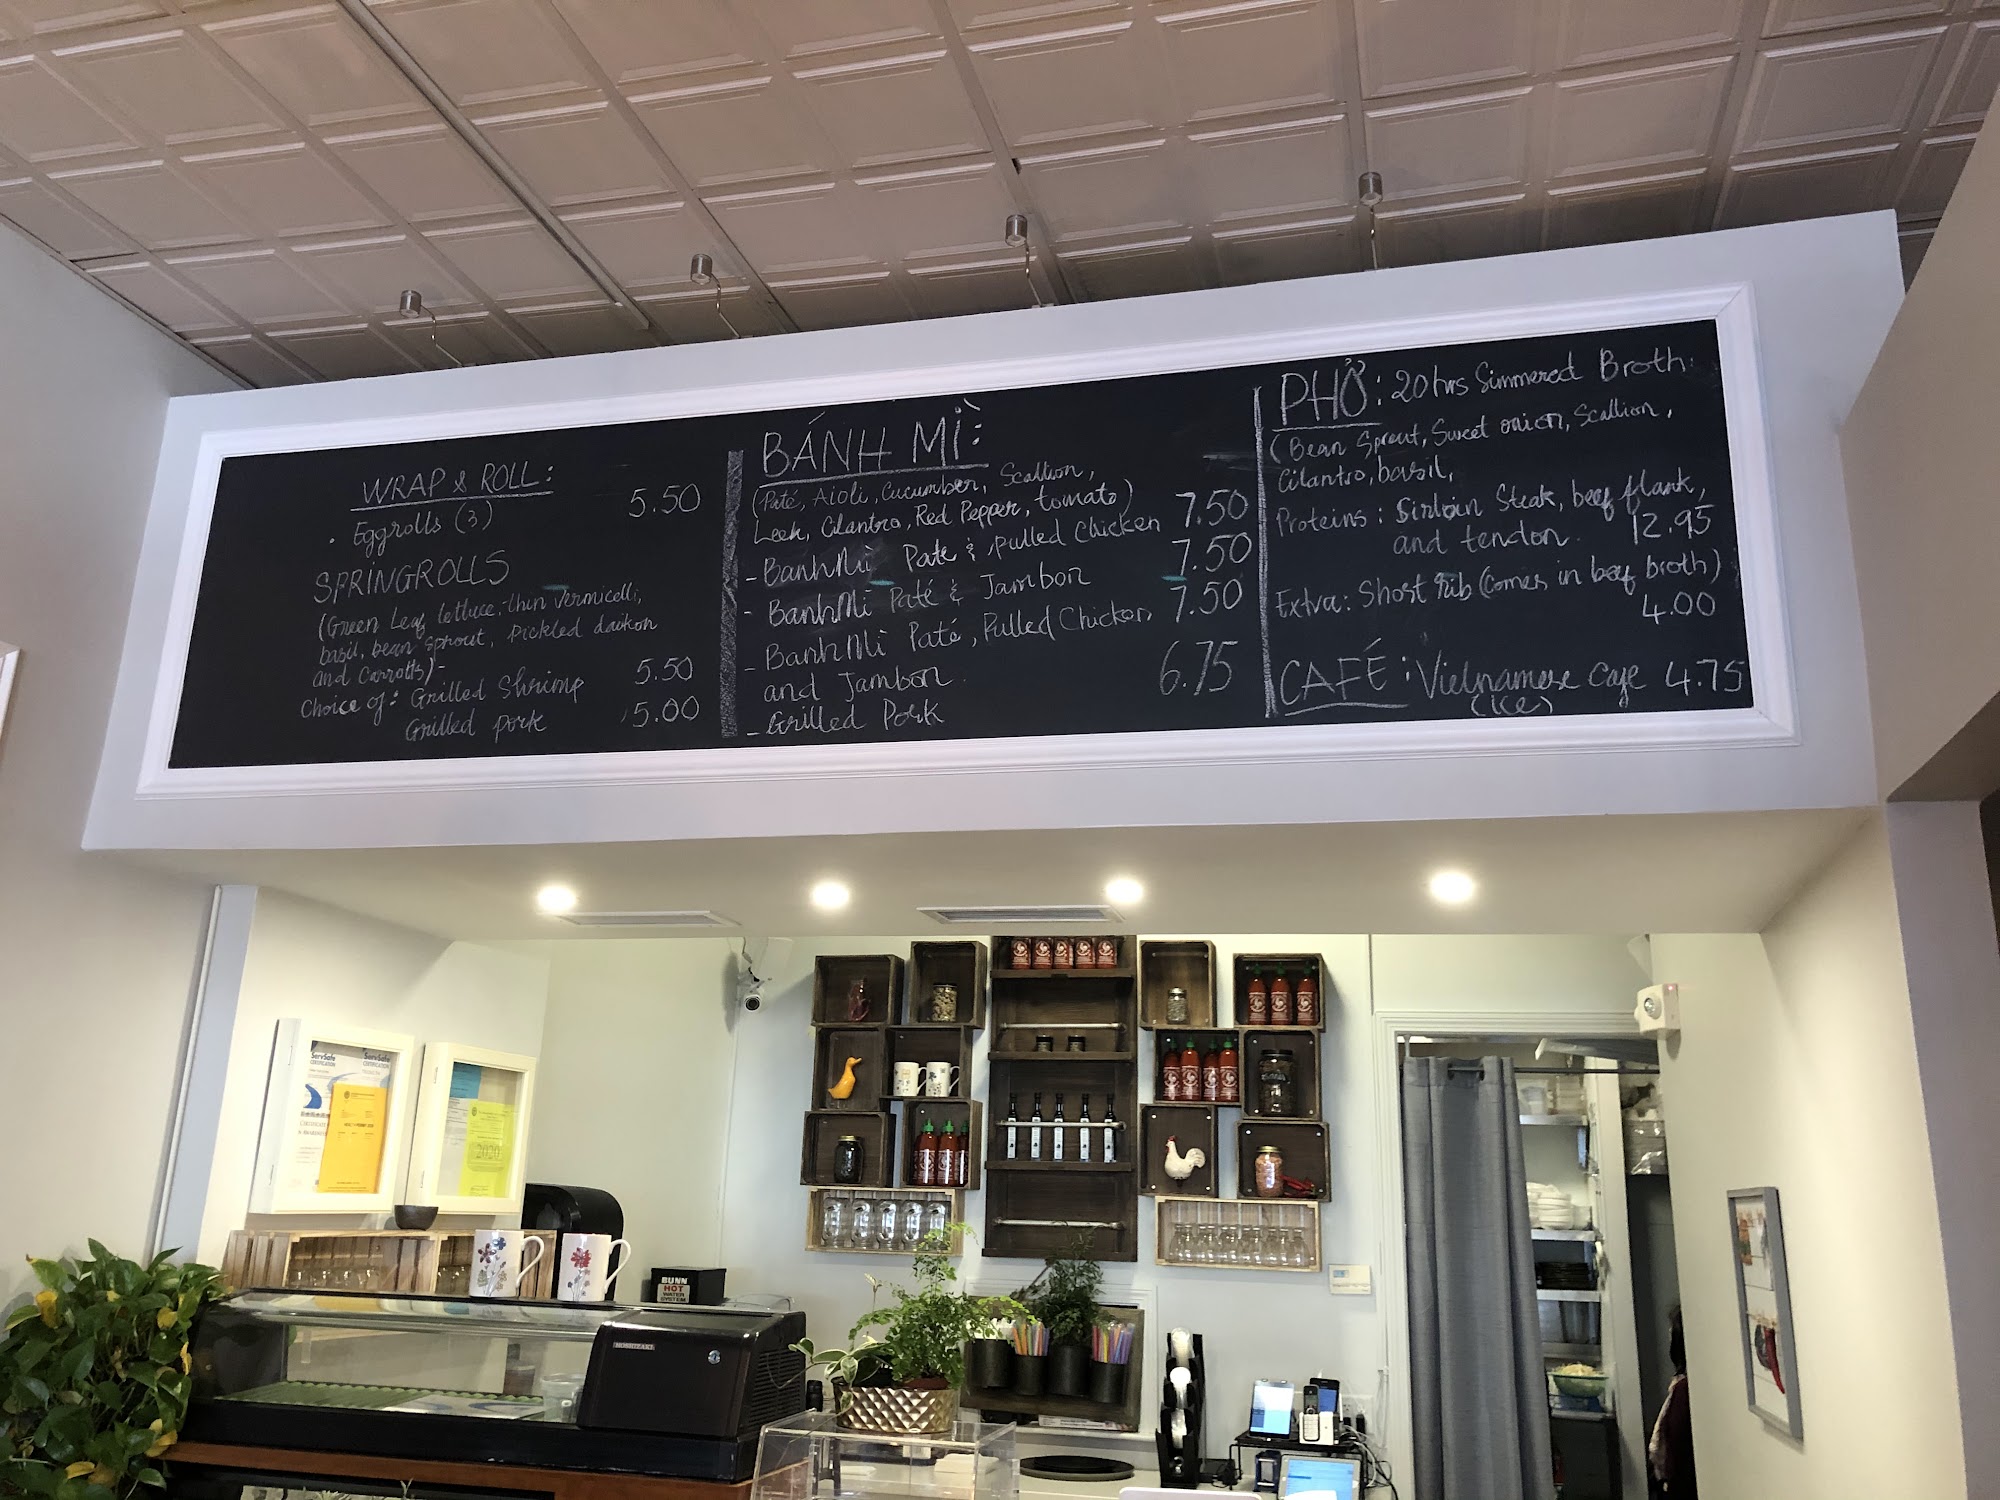 WRAP & ROLL:
• Eggrolls (3) 5.50
SPRINGROLLS
(Green Leaf lettuce, thin vermicelli,
basil, bean sprout, pickled daikon
and Carrotts)-
Choice of: Grilled Shrimp 5.50
Grilled pork 5.00
BÁNH MÌ:
(Paté, Aioli, Cucumber, Scallion,
Leek, Cilantro, Red Pepper, tomato)
- BanhMì Pate & pulled Chicken 7.50
- BanhMì Paté & Jambon 7.50
- BanhMì Paté, Pulled Chicken, 7.50
and Jambon.
- Grilled Pork 6.75
PHỞ: 20hrs Simmered Broth:
(Bean Sprout, Sweet onion, Scallion,
Cilantro, basil,
Proteins: Sirloin Steak, beef flank,
and tendon. 12.95
Extra: Short rib (Comes in beef broth)
4.00
CAFÉ: Vietnamese Cafe 4.75
(ice)
ServSafe
CERTIFICATION
ServSafe
CERTIFICATION
2020
BUNN
HOT
WATER
SYSTEM
HOSHIZAKI